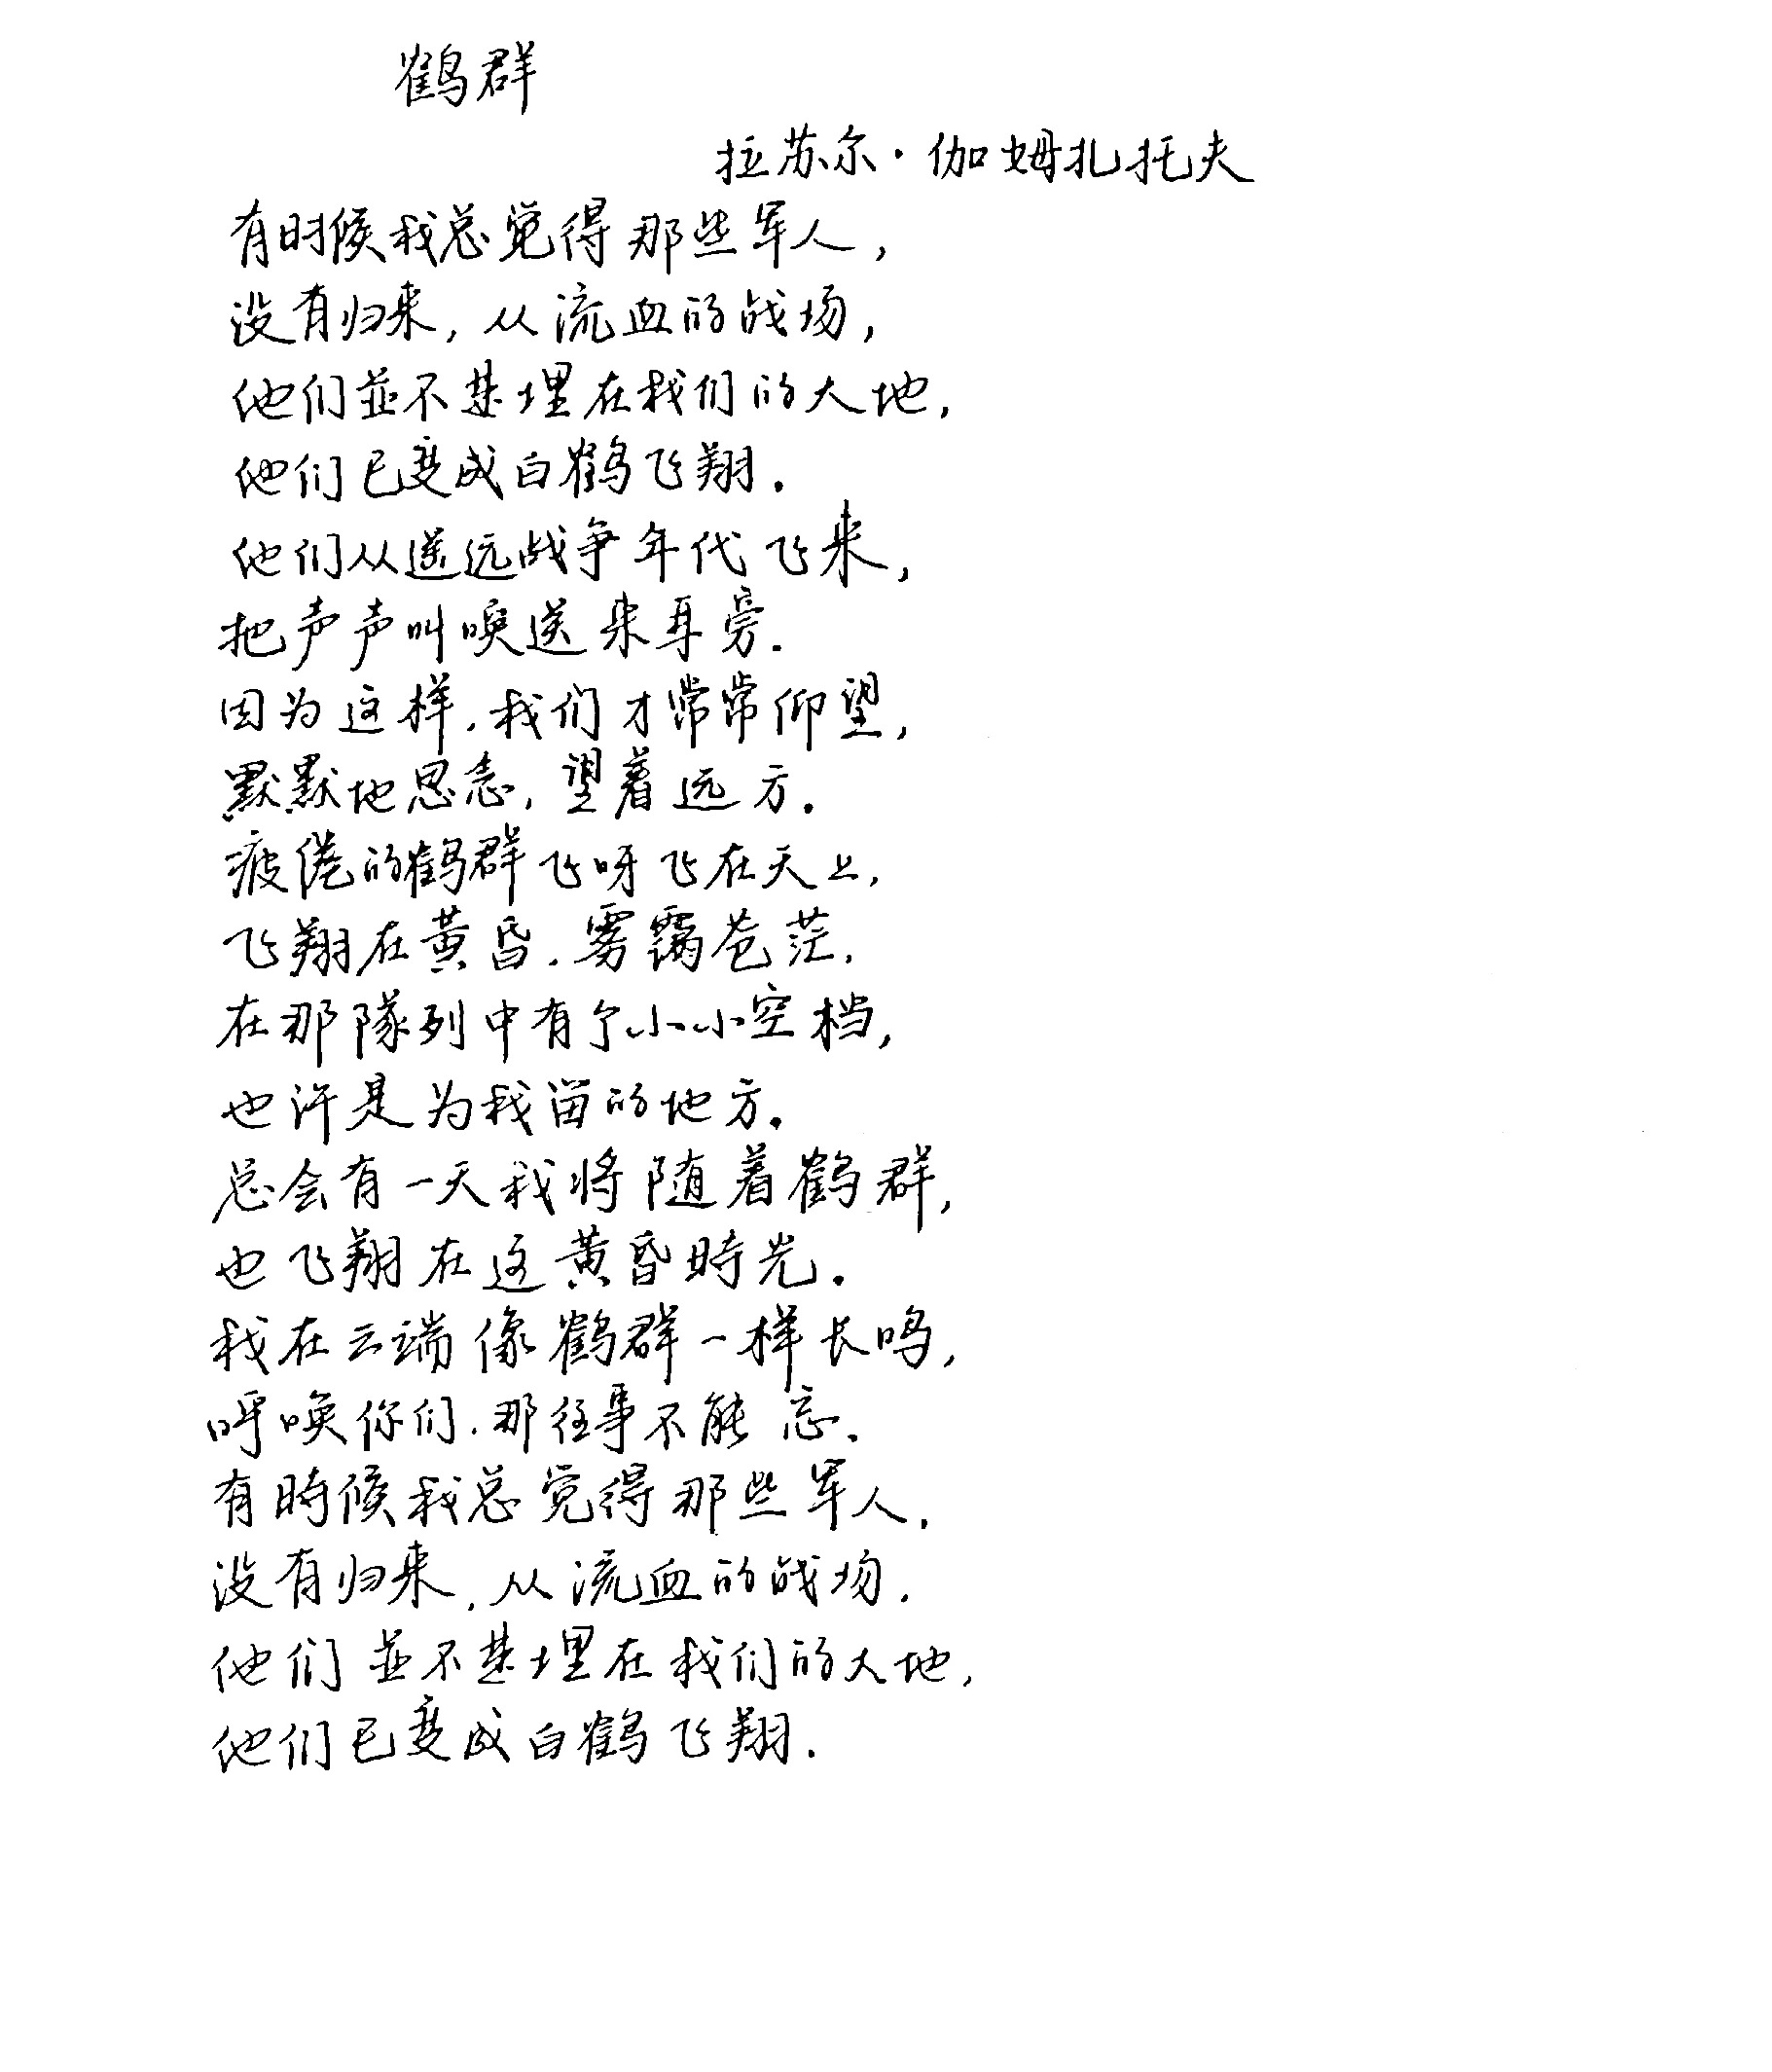 鹤群
拉苏尔·伽姆扎托夫
有时候我总觉得那些军人,
没有归来,从流血的战场,
他们並不葬埋在我们的大地,
他们已变成白鹤飞翔.
他们从遥远战争年代飞来,
把声声叫唤送来耳旁.
因为这样,我们才常常仰望,
默默地思念,望着远方.
疲倦的鹤群飞呀飞在天上,
飞翔在黄昏,雾霭苍茫,
在那隊列中有个小小空档,
也许是为我留的地方.
总会有一天我将随着鹤群,
也飞翔在这黄昏時光.
我在云端像鹤群一样长鸣,
呼唤你们,那往事不能忘.
有時候我总觉得那些军人,
没有归来,从流血的战场,
他们並不葬埋在我们的大地,
他们已变成白鹤飞翔.